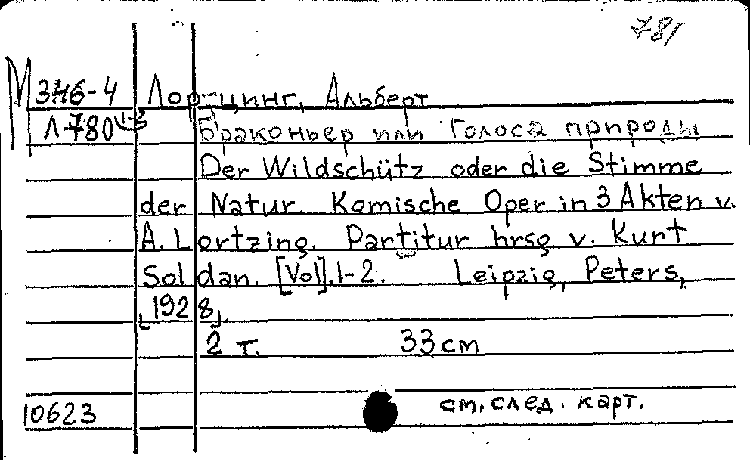 781
М 346-4 Лортцинг, Альберт
Л-780 1-3 Браконьер или Голоса природы
Der Wildschütz oder die Stimme
der Natur. Komische Oper in 3 Akten v.
A. Lortzing. Partitur hrsg v. Kurt
Soldan. [Vol].1-2. Leipzig, Peters,
[1928].
2 т. 33 cm
10623 см. след. карт.